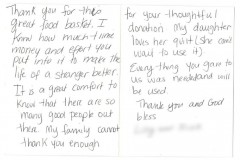 Thank you for this
great food basket. I
know how much time
money and effort you
put into it to make the
life of a stranger better.
It is a great comfort to
know that there are so
many good people out
there. My family cannot
thank you enough
for your thoughtful
donation. My daughter
loves her quilt (She can't
wait to use it)
Everything you gave to
us was needed and will
be used.
Thank you and God
bless